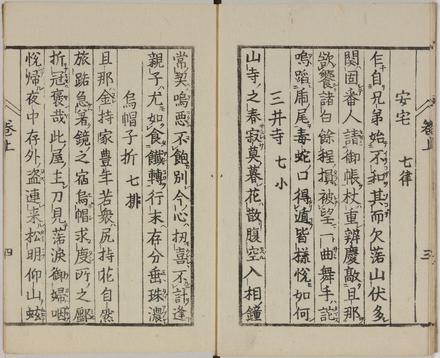 安宅 七律
乍自兄弟始不和其而欠落山伏多
關固番人請御帳杖重辨慶敲旦那
欲饗諸白餘程損被望一曲舞手詑
嗚蹈虎尾毒蛇口得遁皆揉悅如何
三井寺 七小
山寺之春寂莫暮花散腹空入相鐘
三
常契鳴悪不飽別今心拐喜不計逢
親子尤如食饑轉行末存分垂珠濃
烏帽子折 七排
且那金持家豊牛若衆尻持花自然
旅路急著鏡之宿烏帽求度所之鄽
折冠褒哉此屋主刀見落淚御婦咽
悅歸夜中存外盗連来松明仰山炫
卷上
四